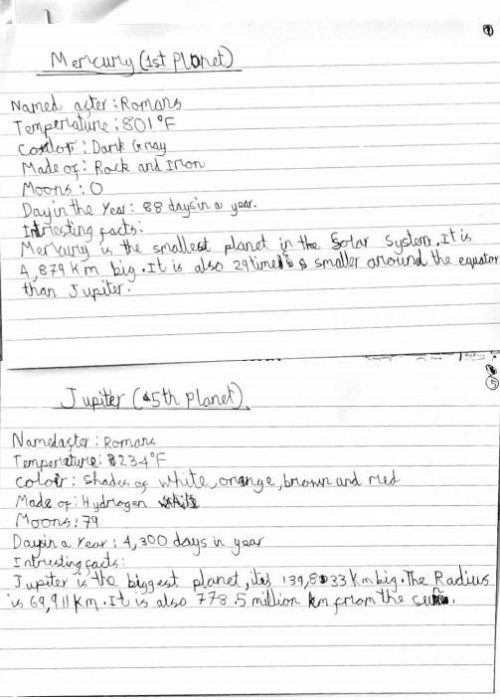 ①
Mercury (1st Planet)
Named after : Romans
Temperature : 801°F
Color : Dark Gray
Made of : Rock and Iron
Moons : 0
Day in the Year : 88 days in a year.
Intresting facts :
Mercury is the smallest planet in the Solar System. It is
4,879 Km big. It is also 29 times smaller around the equator
than Jupiter.
⑤
Jupiter (5th Planet)
Named after : Romans
Temperature : 234°F
Color : Shades of white, orange, brown and red
Made of : Hydrogen
Moons : 79
Day in a Year : 4,300 days in year
Intresting facts :
Jupiter is the biggest planet, its 139,833 Km big. The Radius
is 69,911 Km. It is also 778.5 million km from the sun.